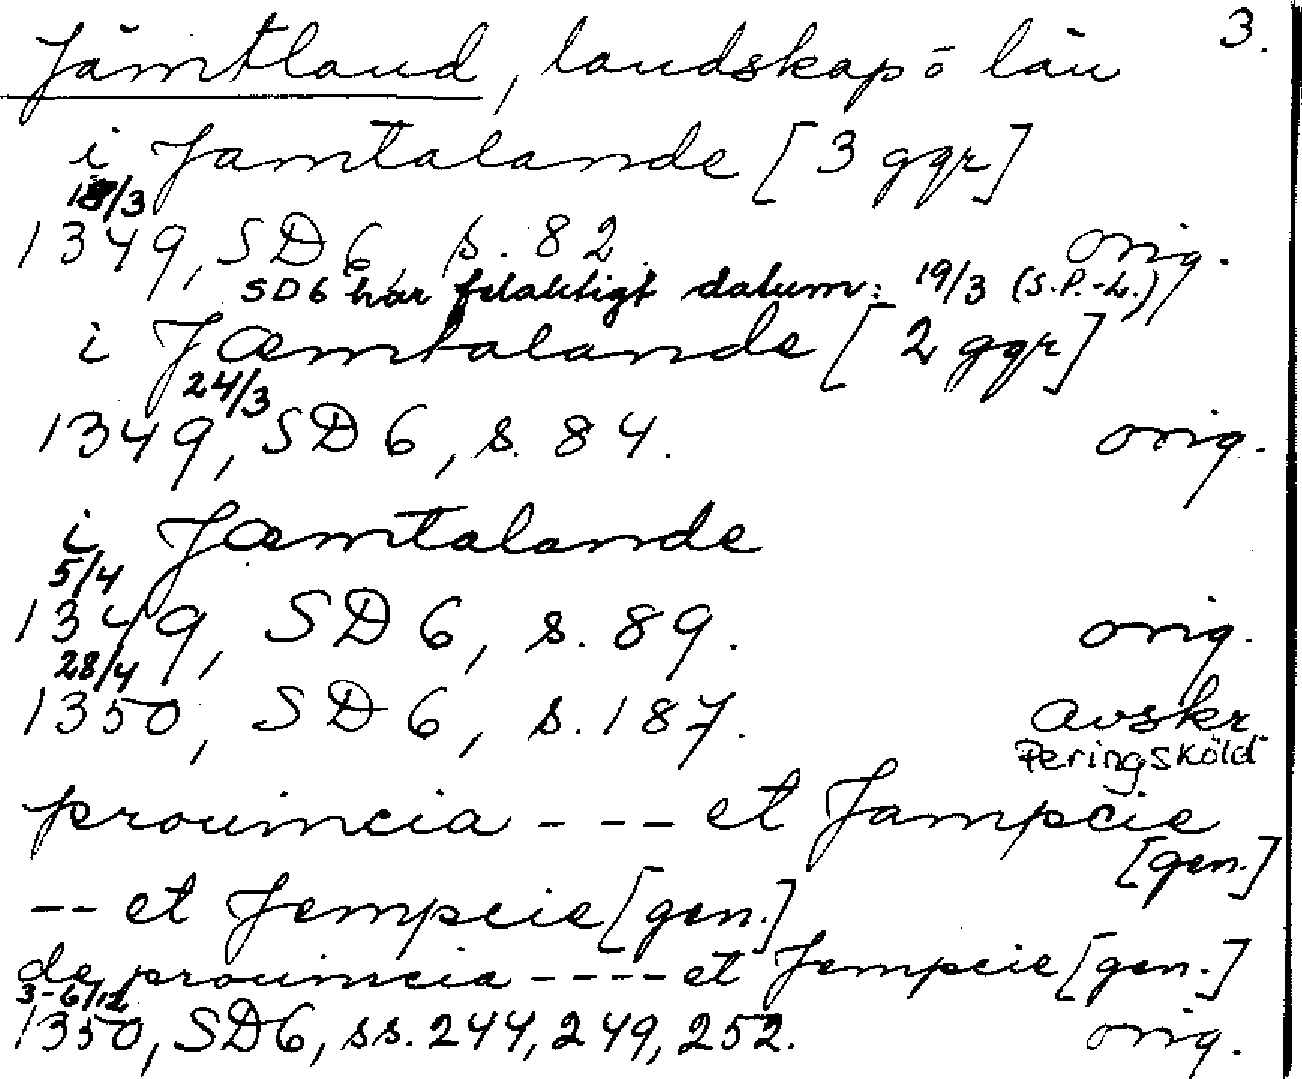 3.
Jämtland, landskap o län
i Jamtalande [3 ggr]
18/3
1349, SD 6, s. 82. orig.
SD6 har felaktigt datum: 19/3 (S.P.-L.)
i Jæmtalande [2 ggr]
24/3
1349, SD 6, s. 84. orig.
i Jæmtalande
5/4
1349, SD 6, s. 89. orig.
28/4
1350, SD 6, s. 187. avskr
Peringsköld
prouincia - - - - et Jampcie
[gen.]
-- et Jempcie [gen.]
de prouincia - - - - et Jempcie [gen.]
3-6/12
1350, SD6, ss. 244, 249, 252. orig.